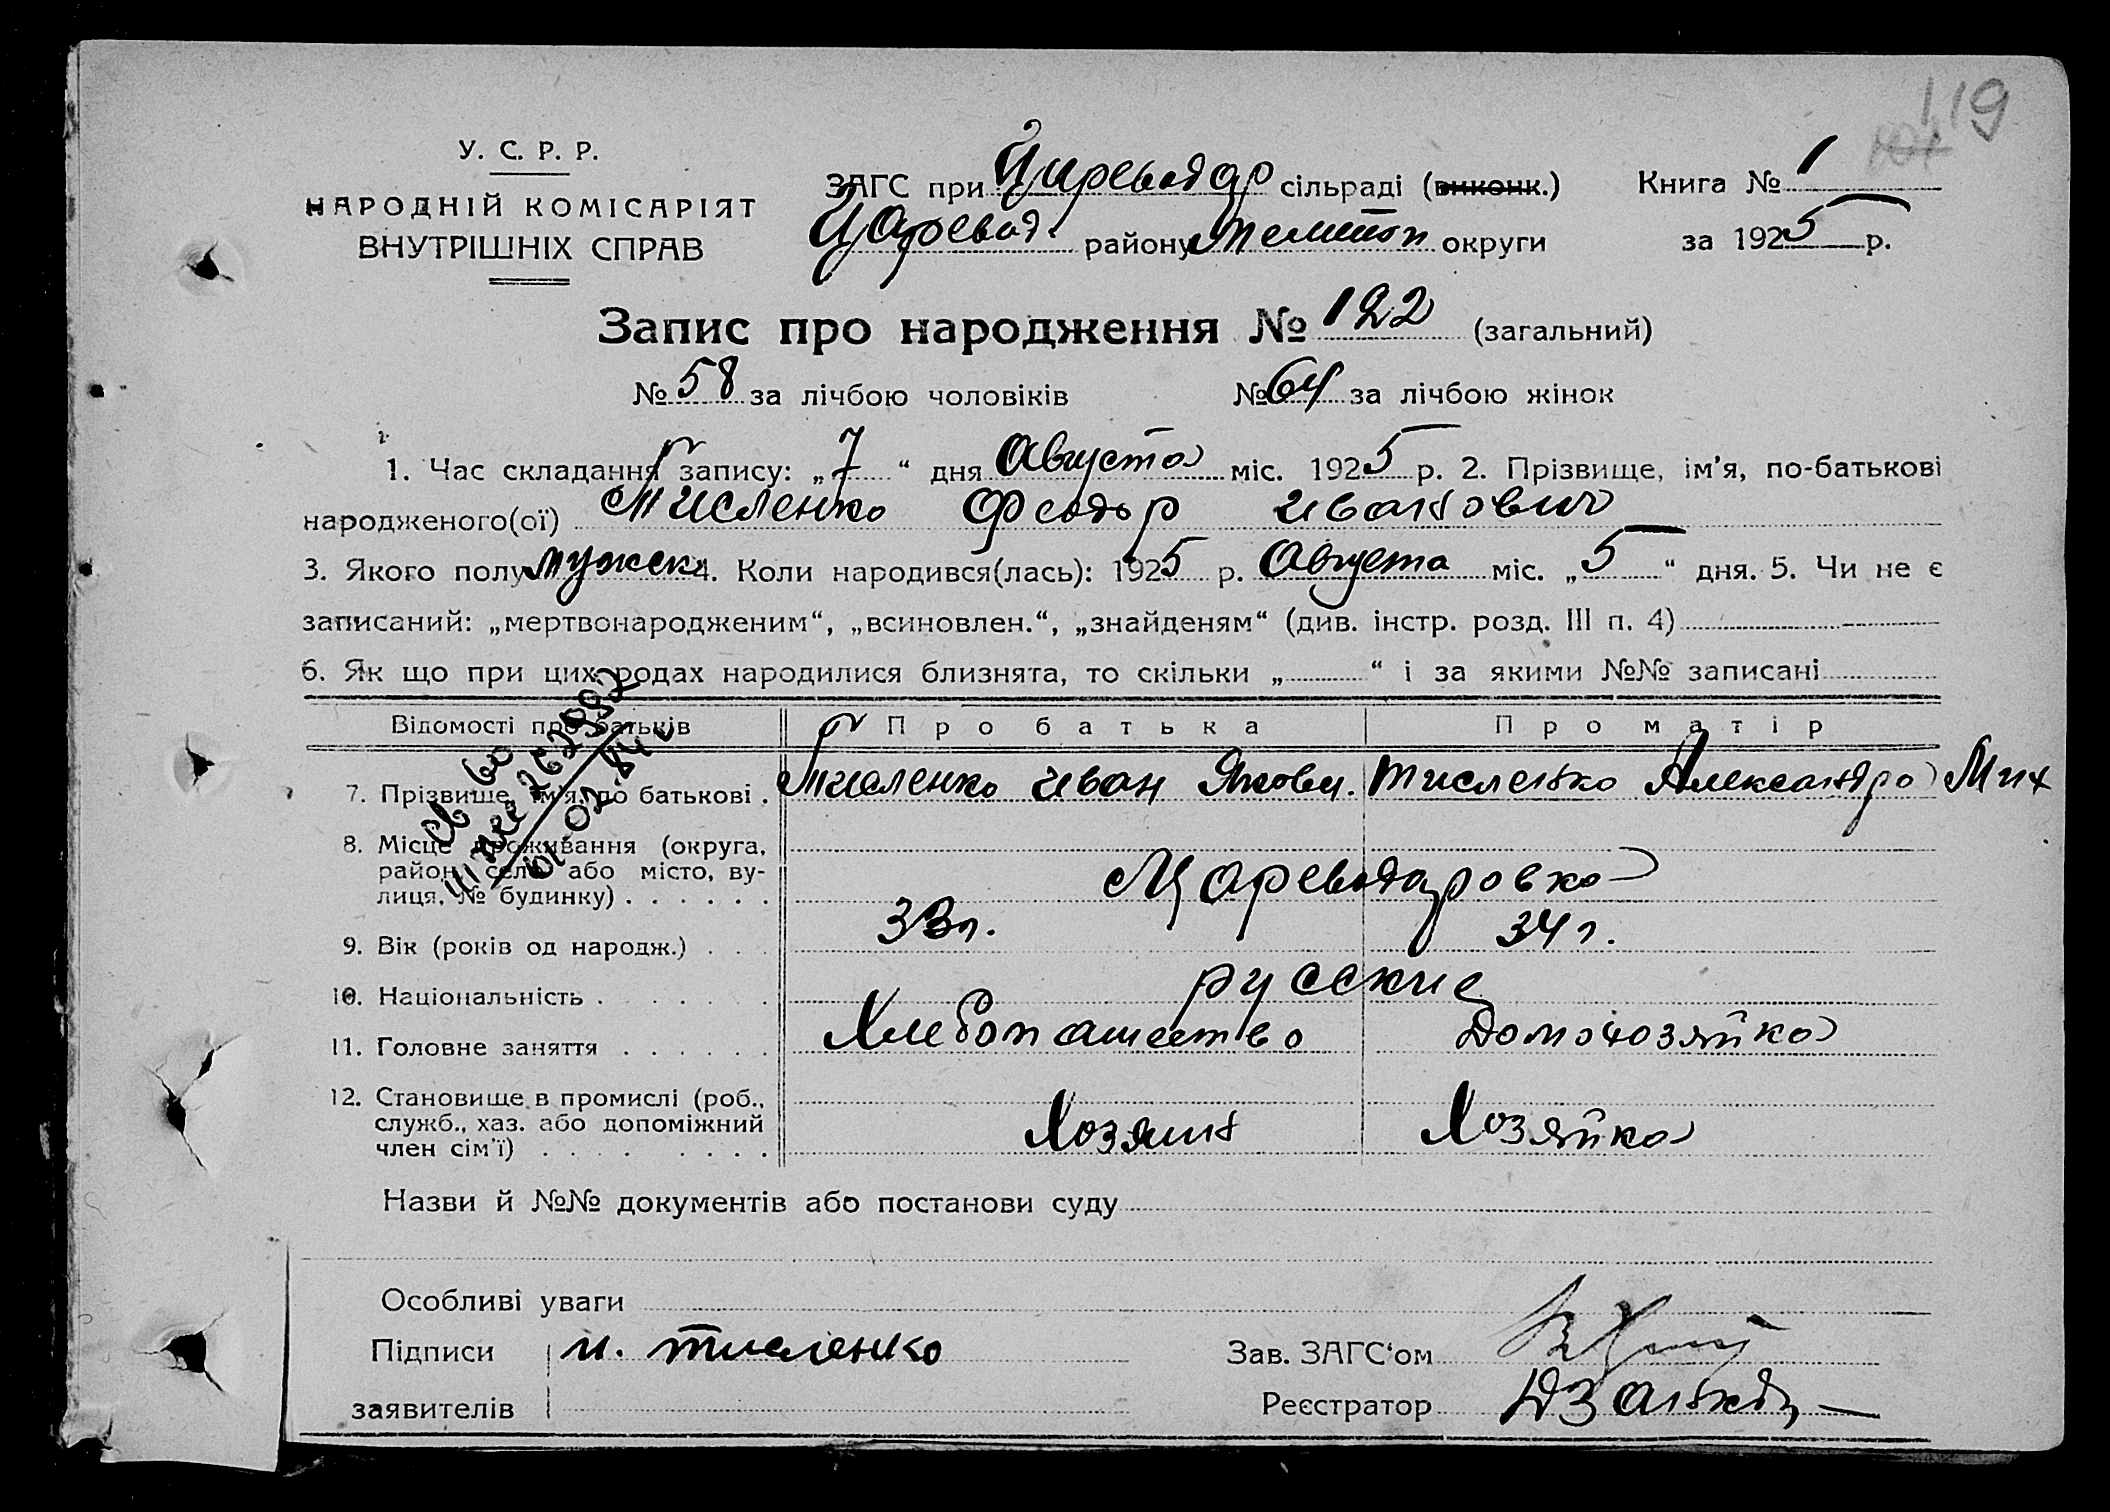 119
У. С. Р. Р.
НАРОДНІЙ КОМІСАРІЯТ
ВНУТРІШНІХ СПРАВ
ЗАГС при Цареводар сільраді (виконк.) Книга № 1
Царевод. району Мелитоп округи за 1925 р.
Запис про народження № 122 (загальний)
№ 58 за лічбою чоловіків № 64 за лічбою жінок
1. Час складання запису: „7“ дня Августа міс. 1925 р. 2. Прізвище, ім’я, по-батькові
народженого(ої) Тисленко Феодор Иванович
3. Якого полу мужск 4. Коли народився(лась): 1925 р. Августа міс. „5“ дня. 5. Чи не є
записаний: „мертвонародженим“, „всиновлен.“, „знайденям“ (див. інстр. розд. III п. 4)
6. Як що при цих родах народилися близнята, то скільки „ “ і за якими №№ записані
Відомості про батьків Про батька Про матір
7. Прізвище, ім’я, по батькові . Тисленко Иван Яковл. Тисленко Александра Мих
8. Місце проживання (округа,
район, село або місто, ву-
лиця, № будинку) . . . . . . Цареводаровка
9. Вік (років од народж.) . . . 33 л. 34 г.
10. Національність . . . . . . русские
11. Головне заняття . . . . . . Хлебопашество Домохозяйка
12. Становище в промислі (роб.,
служб., хаз. або допоміжний
член сім’ї) . . . . . . . . Хозяин Хозяйка
Назви й №№ документів або постанови суду
Особливі уваги
Підписи И. Тисленко Зав. ЗАГС‘ом
заявителів Реєстратор